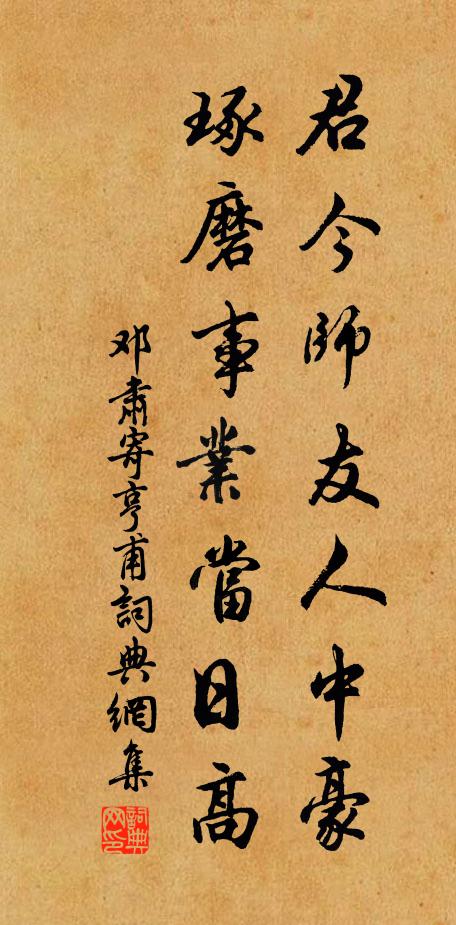 君今師友人中豪
琢磨事業當日高
邓肅寄亨甫詞典網集
詞典網印